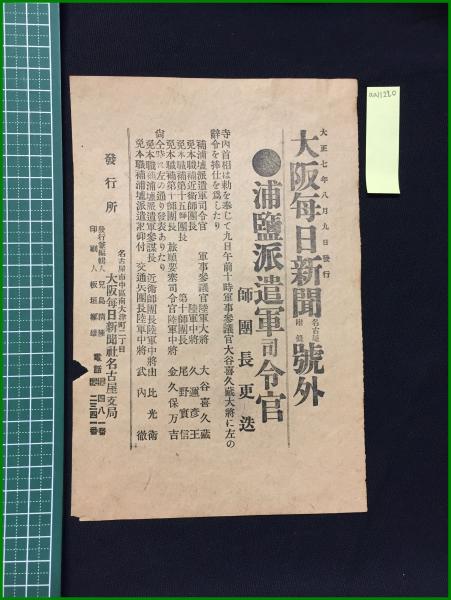 大正七年八月九日發行
大阪每日新聞 名古屋附錄 號外
●浦鹽派遣軍司令官
師團長更迭
寺內首相は勅を奉じて九日午前十時軍事參議官大谷喜久藏大將に左の
辭令を捧仕を爲したり
補浦鹽派遣軍司令官 軍事參議官陸軍大將 大谷喜久藏
免本職補近衛師團長 陸軍中將 久邇彥王
免本職補第十五師團長 第十師團長 尾野實信
免本職補第十師團長 旅順要塞司令官陸軍中將 金久保万吉
尙全時に左の通り發表ありたり
免本職補浦鹽派遣軍參謀長 近衛師團長陸軍中將 由比光衛
免本職補浦鹽派遣軍司令部附 交通兵團長陸軍中將 武內徹
發行所
名古屋市中區南大津町二丁目
大阪每日新聞社名古屋支局
發行兼編輯人 兒島
印刷人 板垣
電話
aa11220